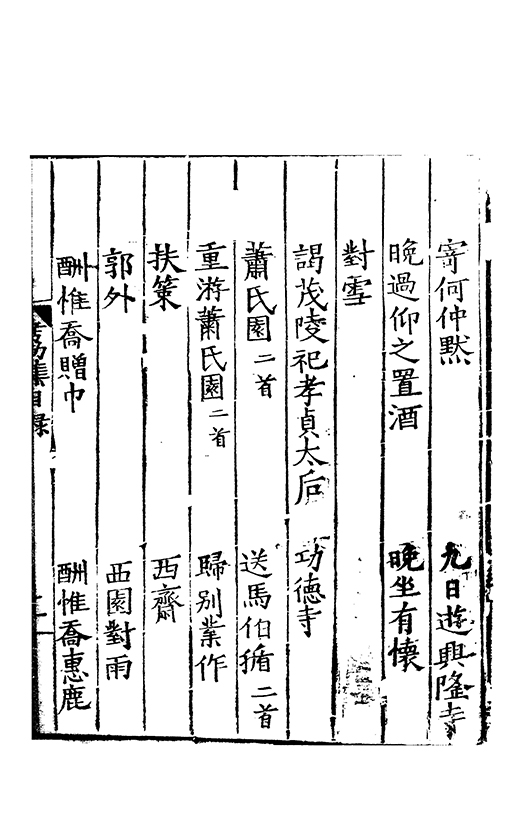 寄何仲默　九日遊興隆寺
晚過仰之置酒　晚坐有懷
對雪
謁茂陵祀孝貞太后　功德寺
蕭氏園二首　送馬伯循二首
重游蕭氏園二首　歸別業作
扶策　西齋
郭外　西園對雨
酬惟喬贈巾　酬惟喬惠鹿
集目録